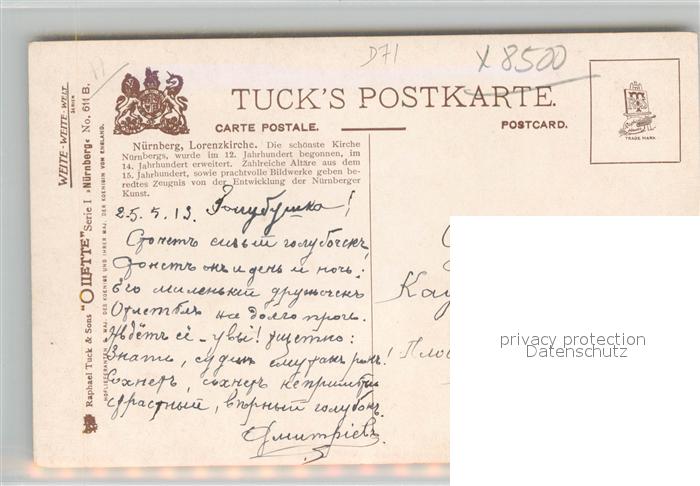 D71
X 8500
TUCK'S POSTKARTE.
CARTE POSTALE.
POSTCARD.
TRADE MARK
WEITE-WEITE-WELT
SERIEN
Raphael Tuck & Sons "OILETTE" Serie I »Nürnberg« No. 611 B.
HOFLIEFERANTEN I. MAJ. DES KOENIGS UND IHRER MAJ. DER KOENIGIN VON ENGLAND.
Nürnberg, Lorenzkirche. Die schönste Kirche
Nürnbergs, wurde im 12. Jahrhundert begonnen, im
14. Jahrhundert erweitert. Zahlreiche Altäre aus dem
15. Jahrhundert, sowie prachtvolle Bildwerke geben be-
redtes Zeugnis von der Entwicklung der Nürnberger
Kunst.
25. 5. 13. Голубушка!
Стонетъ сизый голубочекъ,
Стонетъ онъ и день и ночь:
Его миленькій дружочекъ
Отлетѣлъ на долго прочь.
Ждетъ ее - увы! тщетно:
Знать, судилъ ему такъ рокъ!
Сохнетъ, сохнетъ непримѣтно
страстный, вѣрный голубокъ.
Дмитріевъ.
Ка
Пло
privacy protection
Datenschutz